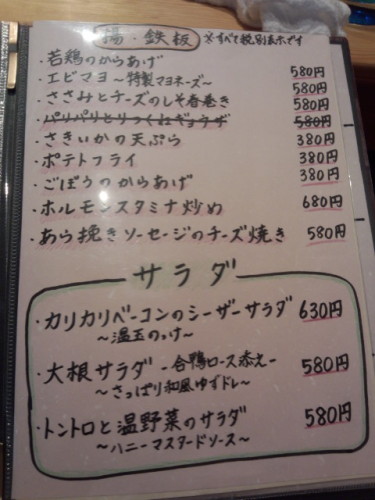 揚・鉄板 ※すべて税別表示です
・若鶏のからあげ 580円
・エビマヨ～特製マヨネーズ～ 580円
・ささみとチーズのしそ春巻き 580円
・パリパリとりつくねギョウザ 580円
・さきいかの天ぷら 380円
・ポテトフライ 380円
・ごぼうのからあげ 380円
・ホルモンスタミナ炒め 680円
・あら挽きソーセージのチーズ焼き 580円
サラダ
・カリカリベーコンのシーザーサラダ 630円
～温玉のっけ～
・大根サラダ -合鴨ロース添え- 580円
～さっぱり和風ゆずドレ～
・トントロと温野菜のサラダ 580円
～ハニーマスタードソース～